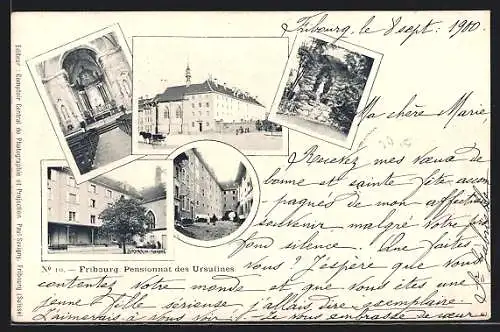 Fribourg, le 8 sept. 1900
Ma chère Marie,
Recevez mes vœux de
bonne et sainte fête accom-
pagnés de mon affectueux
souvenir malgré votre pro-
fond silence. Que faites-
vous? J'espère que vous
contentez votre monde et que vous êtes une
jeune fille sérieuse j'allais dire exemplaire.
J'aimerais à vous voir. Je vous embrasse de cœur
No 10. — Fribourg. Pensionnat des Ursulines.
Editeur: Comptoir Central de Photographie et Projection, Paul Savigny, Fribourg (Suisse)